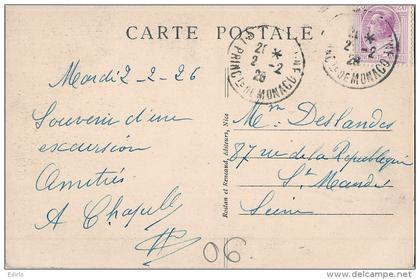 CARTE POSTALE
Mardi 2-2-26
Souvenir d'une
excursion
Amitiés
A Chapell
Mr Deslandes
87 rue de la République
St Mandé
Seine
PRINCTE DE MONACO
2 -2
26
PRINCTE DE MONACO
2 -2
26
Rostan et Renaud, éditeurs, Nice
06
delcampe.net